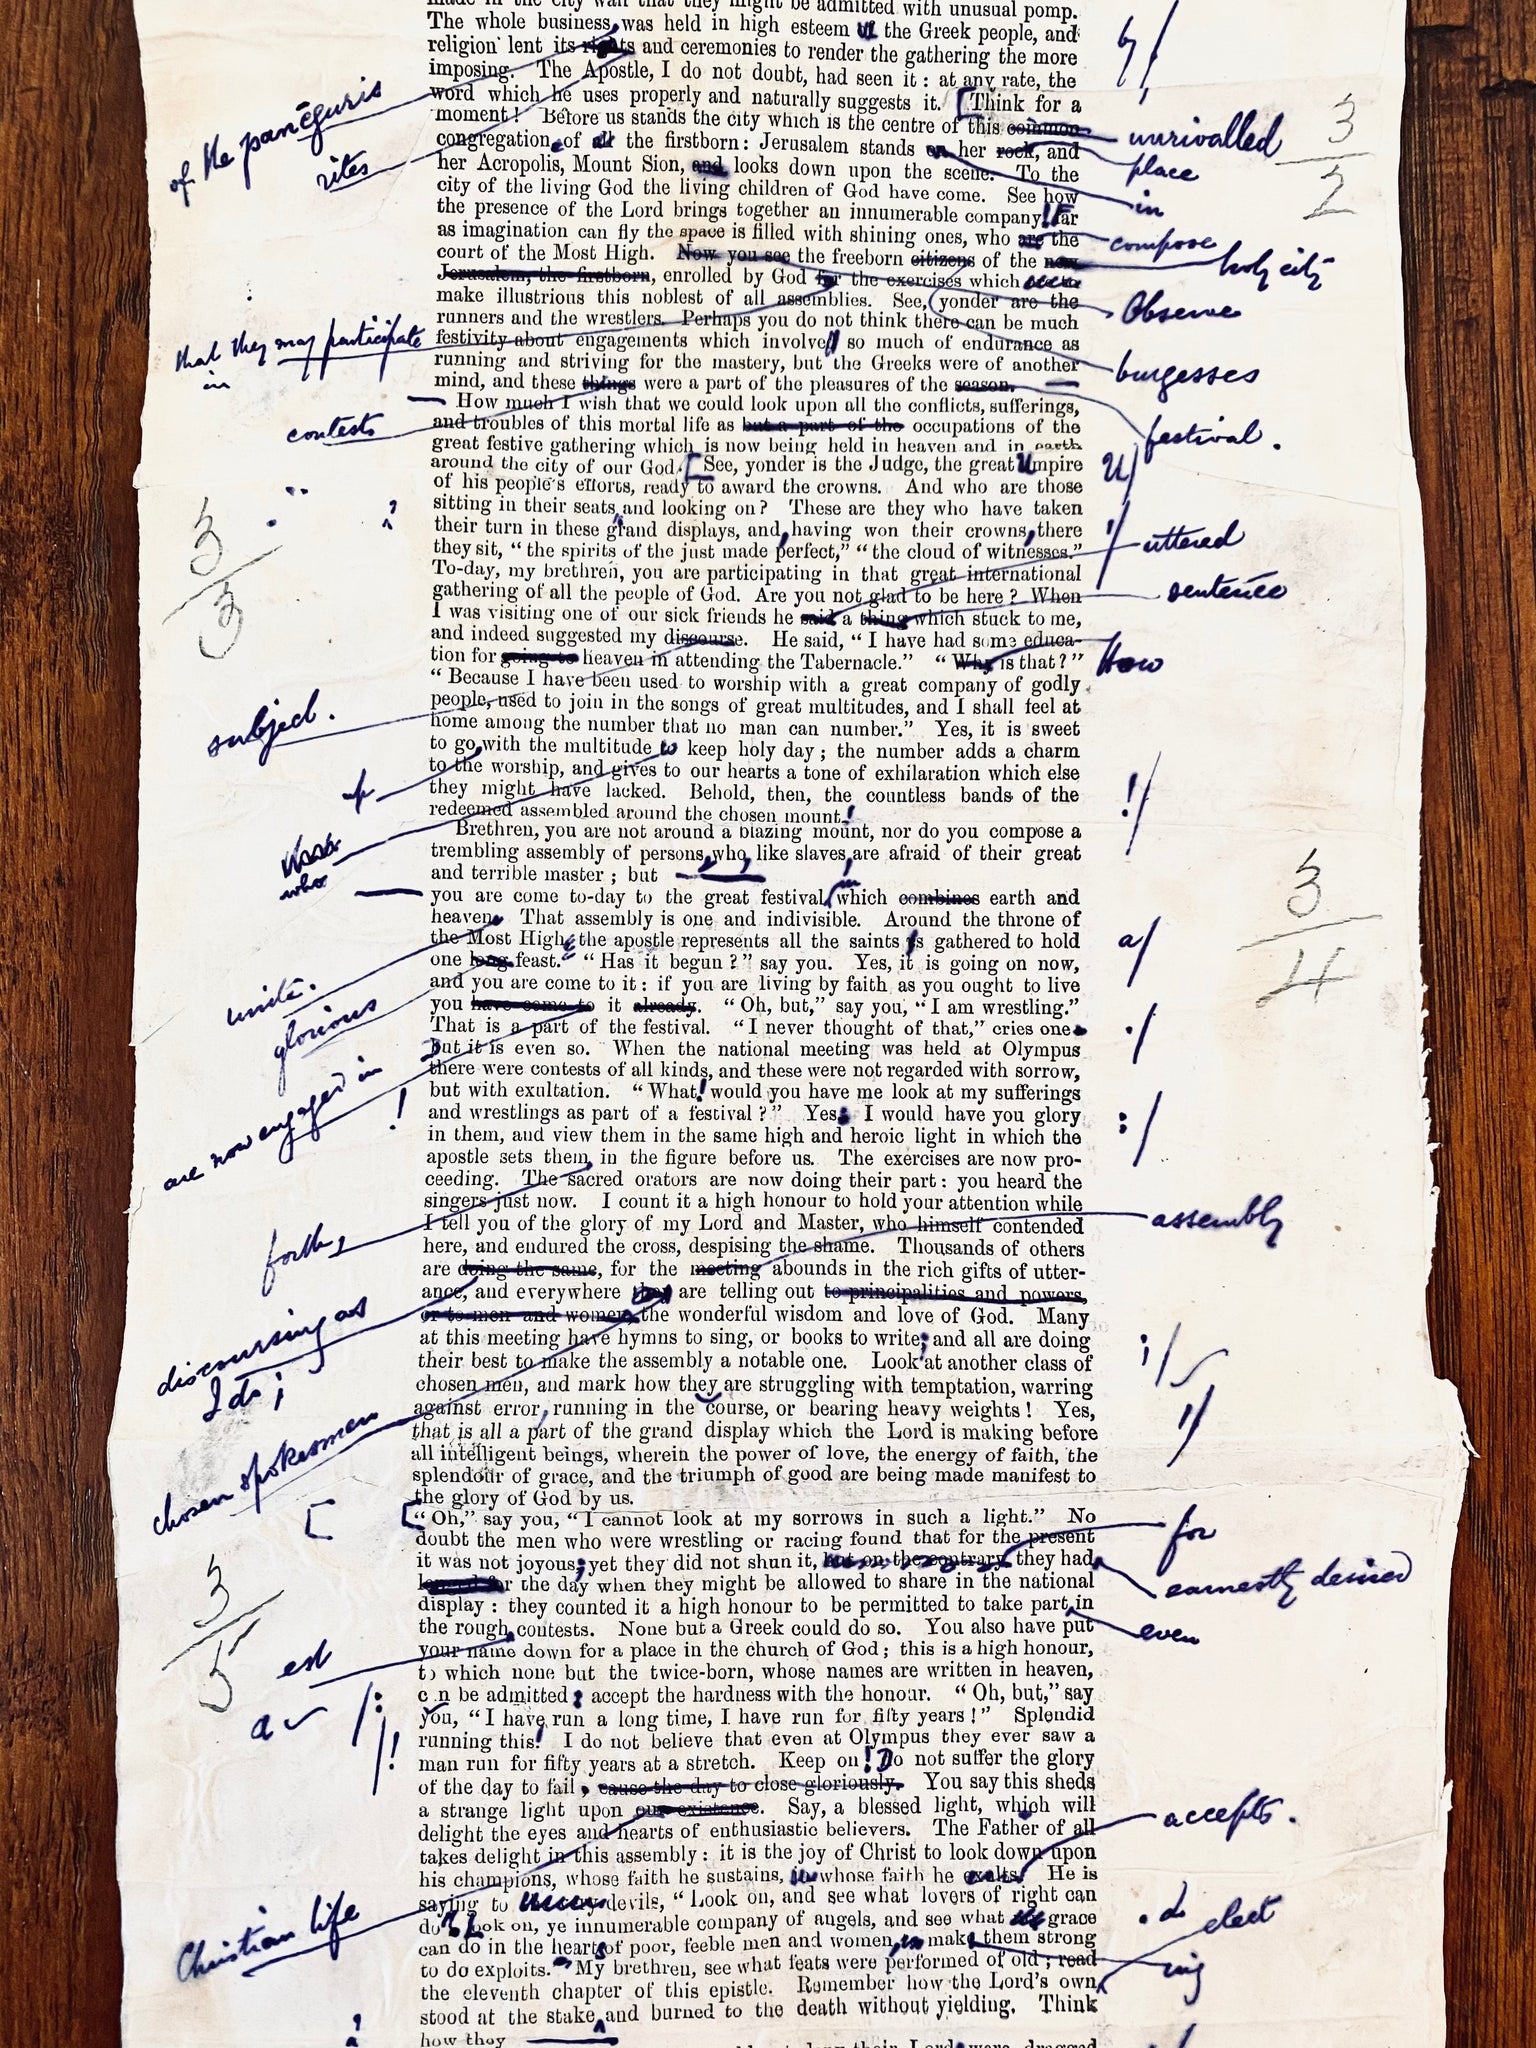 made in the city wall that they might be admitted with unusual pomp.
The whole business, was held in high esteem by the Greek people, and
religion lent its rights and ceremonies to render the gathering the more
imposing. The Apostle, I do not doubt, had seen it: at any rate, the
word which he uses properly and naturally suggests it. [Think for a
moment! Before us stands the city which is the centre of this common
congregation of all the firstborn: Jerusalem stands on her rock, and
her Acropolis, Mount Sion, and looks down upon the scene. To the
city of the living God the living children of God have come. See how
the presence of the Lord brings together an innumerable company! Far
as imagination can fly the space is filled with shining ones, who are the
court of the Most High. Now you see the freeborn citizens of the new
Jerusalem, the firstborn, enrolled by God for the exercises which
make illustrious this noblest of all assemblies. See, yonder are the
runners and the wrestlers. Perhaps you do not think there can be much
festivity about engagements which involve so much of endurance as
running and striving for the mastery, but the Greeks were of another
mind, and these things were a part of the pleasures of the season.
How much I wish that we could look upon all the conflicts, sufferings,
and troubles of this mortal life as but a part of the occupations of the
great festive gathering which is now being held in heaven and in earth
around the city of our God. [See, yonder is the Judge, the great Umpire
of his people's efforts, ready to award the crowns. And who are those
sitting in their seats, and looking on? These are they who have taken
their turn in these grand displays, and, having won their crowns, there
they sit, "the spirits of the just made perfect," "the cloud of witnesses."
To-day, my brethren, you are participating in that great international
gathering of all the people of God. Are you not glad to be here? When
I was visiting one of our sick friends he said a thing which stuck to me,
and indeed suggested my discourse. He said, "I have had some educa-
tion for going to heaven in attending the Tabernacle." "Why is that?"
"Because I have been used to worship with a great company of godly
people, used to join in the songs of great multitudes, and I shall feel at
home among the number that no man can number." Yes, it is sweet
to go with the multitude to keep holy day; the number adds a charm
to the worship, and gives to our hearts a tone of exhilaration which else
they might have lacked. Behold, then, the countless bands of the
redeemed assembled around the chosen mount!
Brethren, you are not around a blazing mount, nor do you compose a
trembling assembly of persons who, like slaves, are afraid of their great
and terrible master; but
you are come to-day to the great festival in which combines earth and
heaven. That assembly is one and indivisible. Around the throne of
the Most High the apostle represents all the saints as gathered to hold
one long feast. "Has it begun?" say you. Yes, it is going on now,
and you are come to it: if you are living by faith as you ought to live
you have come to it already. "Oh, but," say you, "I am wrestling."
That is a part of the festival. "I never thought of that," cries one.
but it is even so. When the national meeting was held at Olympus
there were contests of all kinds, and these were not regarded with sorrow,
but with exultation. "What! would you have me look at my sufferings
and wrestlings as part of a festival?" Yes: I would have you glory
in them, and view them in the same high and heroic light in which the
apostle sets them, in the figure before us. The exercises are now pro-
ceeding. The sacred orators are now doing their part: you heard the
singers just now. I count it a high honour to hold your attention while
I tell you of the glory of my Lord and Master, who himself contended
here, and endured the cross, despising the shame. Thousands of others
are doing the same, for the meeting abounds in the rich gifts of utter-
ance, and everywhere they are telling out to principalities and powers,
or to men and women, the wonderful wisdom and love of God. Many
at this meeting have hymns to sing, or books to write; and all are doing
their best to make the assembly a notable one. Look at another class of
chosen men, and mark how they are struggling with temptation, warring
against error, running in the course, or bearing heavy weights! Yes,
that is all a part of the grand display which the Lord is making before
all intelligent beings, wherein the power of love, the energy of faith, the
splendour of grace, and the triumph of good are being made manifest to
the glory of God by us.
["Oh," say you, "I cannot look at my sorrows in such a light." No
doubt the men who were wrestling or racing found that for the present
it was not joyous; yet they did not shun it, but on the contrary, they had
longed for the day when they might be allowed to share in the national
display: they counted it a high honour to be permitted to take part in
the rough contests. None but a Greek could do so. You also have put
your name down for a place in the church of God; this is a high honour,
to which none but the twice-born, whose names are written in heaven,
can be admitted: accept the hardness with the honour. "Oh, but," say
you, "I have run a long time, I have run for fifty years!" Splendid
running this! I do not believe that even at Olympus they ever saw a
man run for fifty years at a stretch. Keep on! Do not suffer the glory
of the day to fail, cause the day to close gloriously. You say this sheds
a strange light upon our existence. Say, a blessed light, which will
delight the eyes and hearts of enthusiastic believers. The Father of all
takes delight in this assembly: it is the joy of Christ to look down upon
his champions, whose faith he sustains, whose faith he exalts. He is
saying to devils, "Look on, and see what lovers of right can
do. Look on, ye innumerable company of angels, and see what grace
can do in the hearts of poor, feeble men and women, make them strong
to do exploits." My brethren, see what feats were performed of old; read
the eleventh chapter of this epistle. Remember how the Lord's own
stood at the stake, and burned to the death without yielding. Think
how they
of the panēguris
rites
that they may participate
in
contests
3/3
subject.
up
who
unite.
glorious
are now engaged in
!
forth,
discoursing as
I do;
chosen spokesmen
[
3/5
est
a
/:
/!
Christian life
by/
unrivalled
3/2
place
in
compose
holy city
Observe
burgesses
festival.
U/
uttered
sentence
How
!/
3/4
a/
./
:/
assembly
;/
for
earnestly desired
even
accepts.
elect
ing